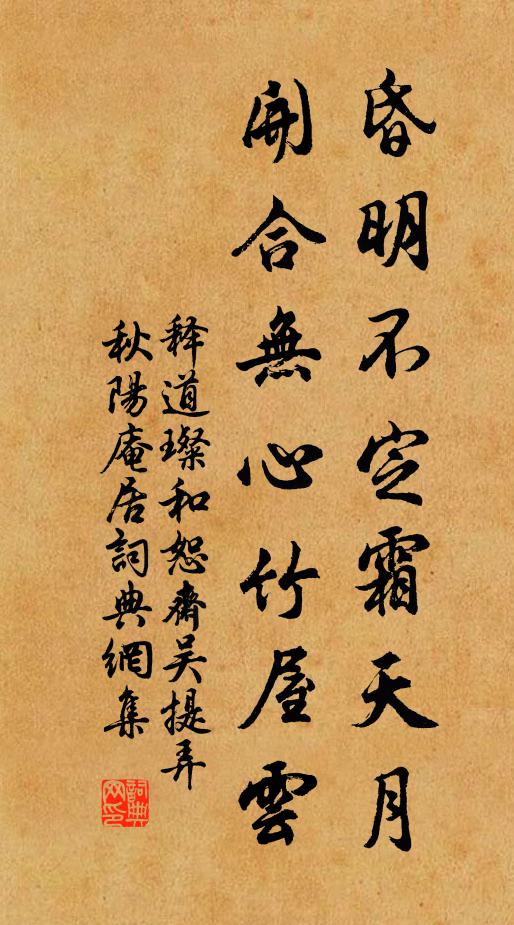 昏明不定霜天月
開合無心竹屋雲
释道璨和恕齋吴提弄
秋陽庵居詞典網集
詞典網印